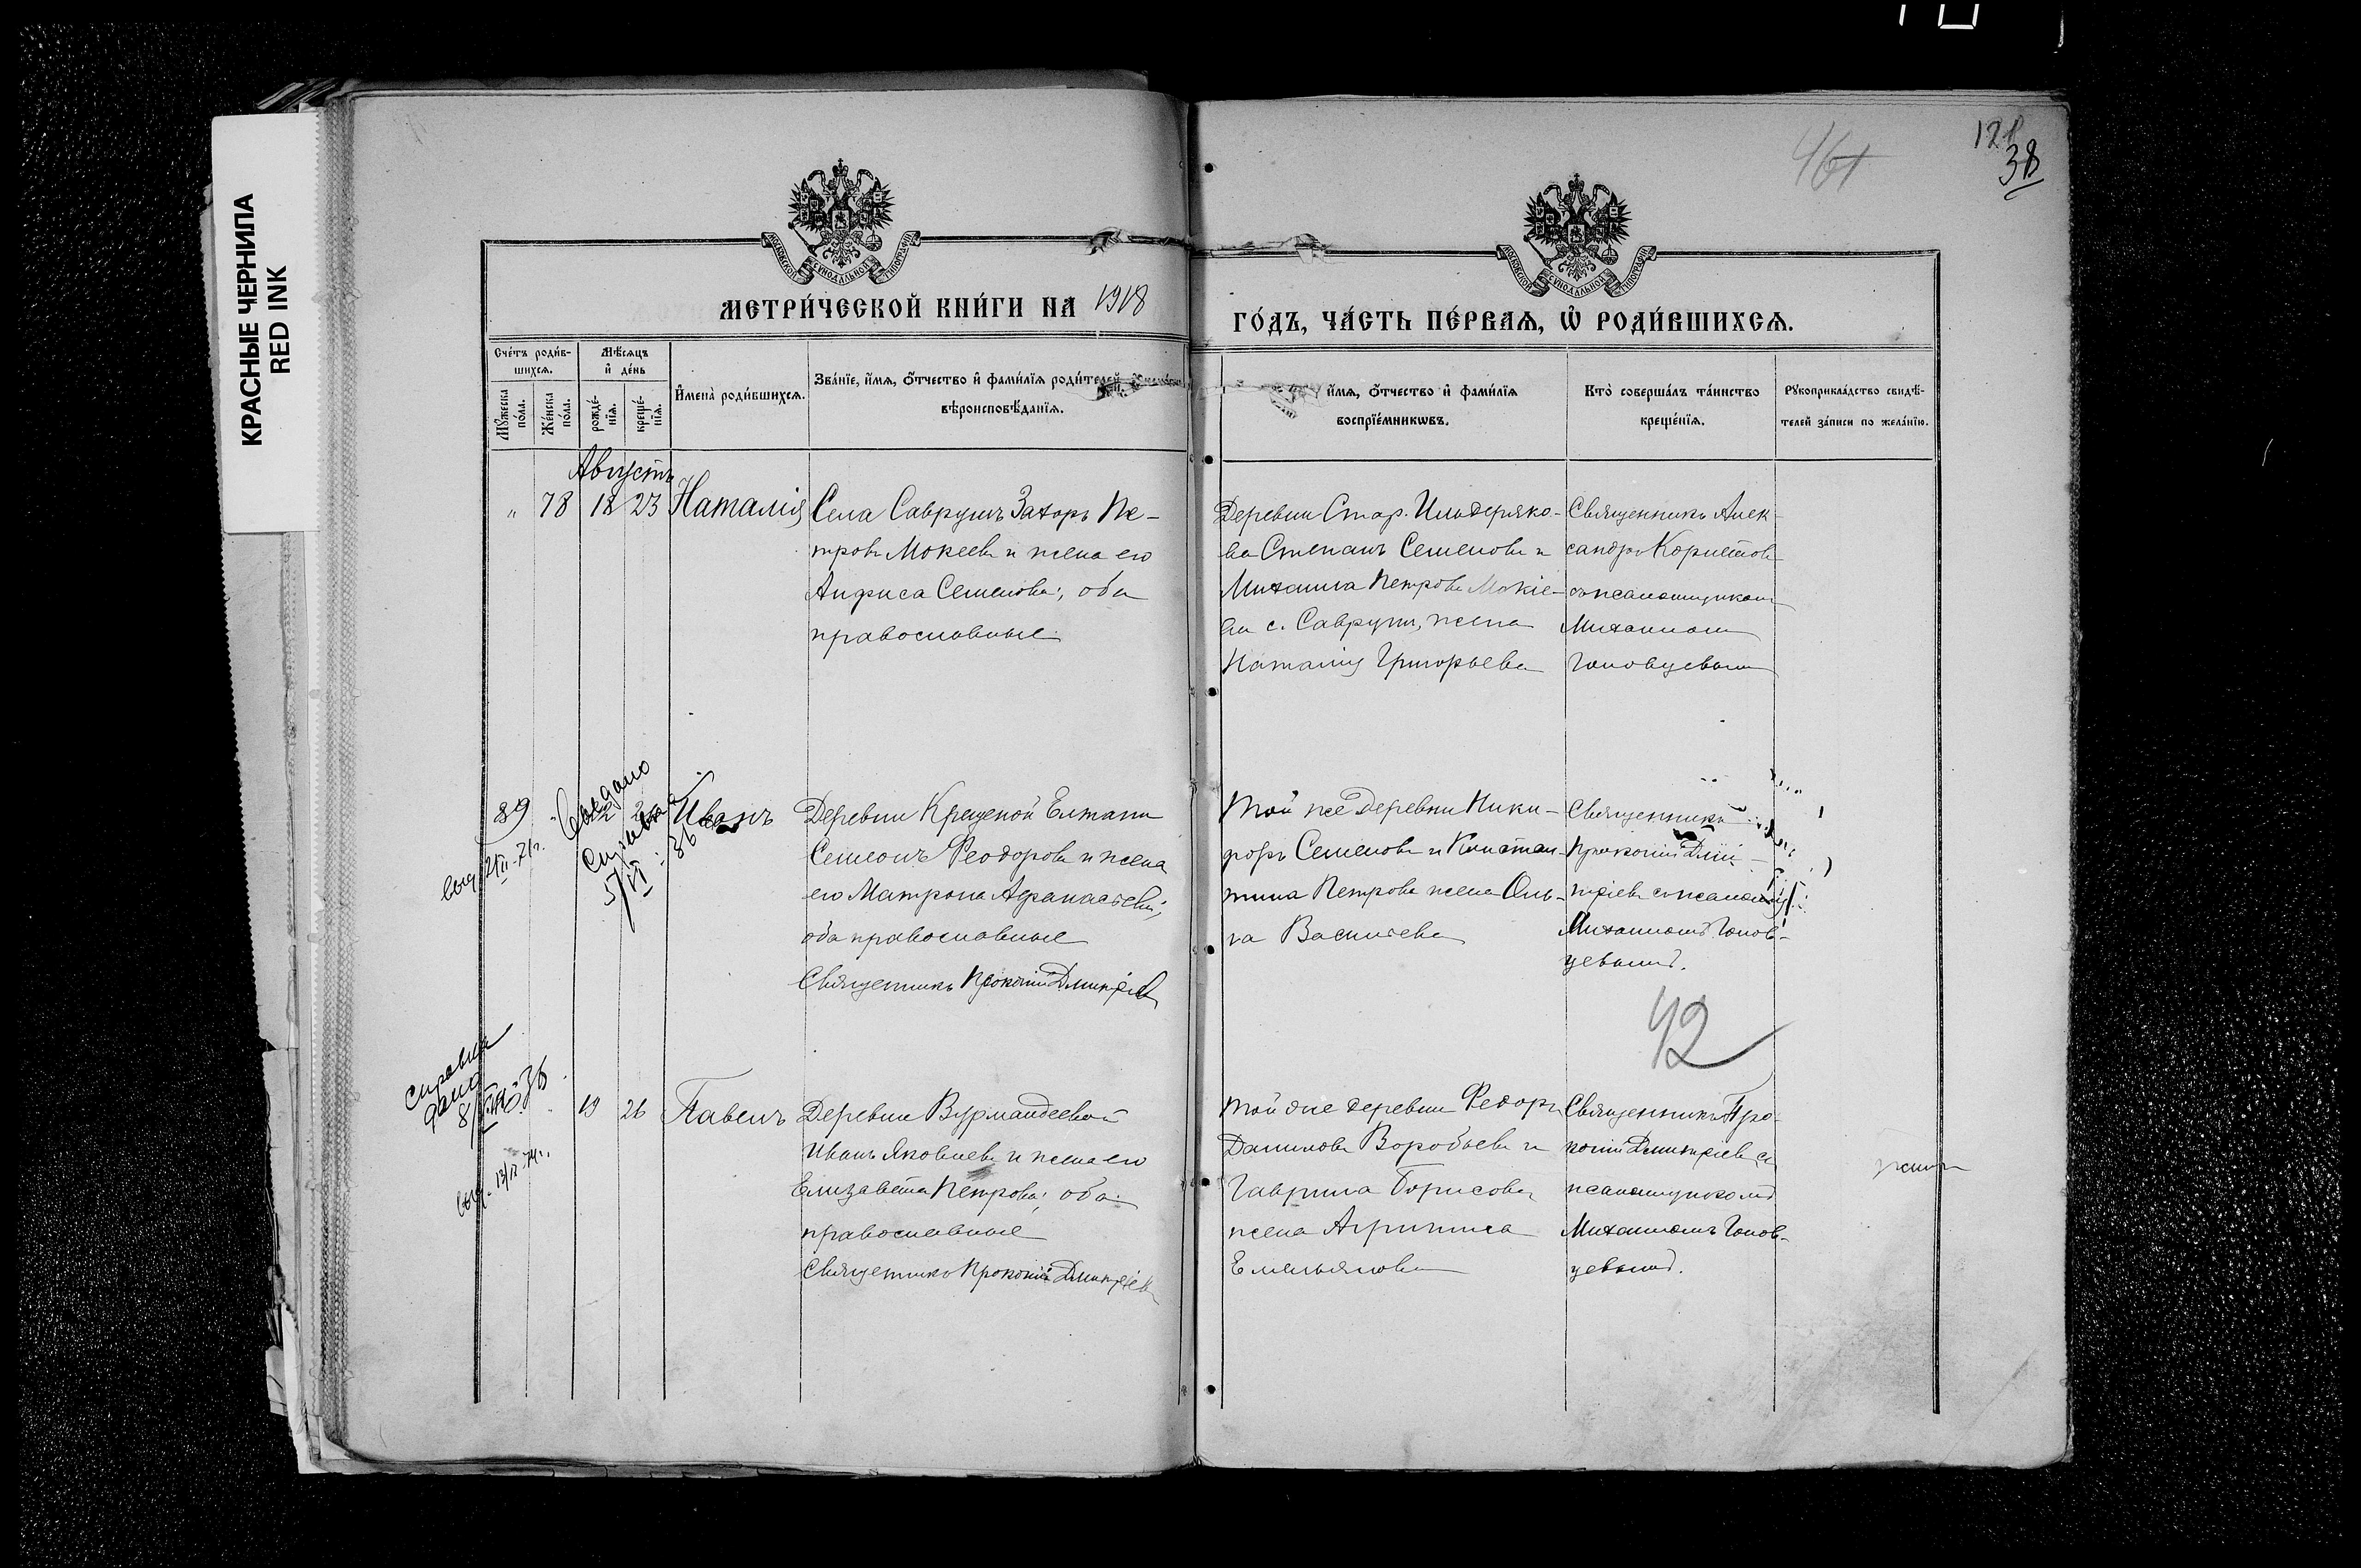 КРАСНЫЕ ЧЕРНИЛА
RED INK
461
121
38
МОСКОВСКОЙ СѴНОДАЛЬНОЙ ТИПОГРАФІИ
МОСКОВСКОЙ СѴНОДАЛЬНОЙ ТИПОГРАФІИ
МЕТРИ́ЧЕСКОЙ КНИ́ГИ НА 1918
ГО́ДЪ, ЧА́СТЬ ПЕ́РВАѦ, Ѡ҆ РОДИ́ВШИХСѦ.
Сче́тъ роди́в-
шихсѧ.
Мꙋ́жеска по́ла.
Же́нска по́ла.
Мѣ́сѧцъ
и҆ де́нь
рожде́-
нїѧ.
креще́-
нїѧ.
И҆мена̀ роди́вшихсѧ.
Зва́нїе, и҆́мѧ, ѻ҆́тчество и҆ фами́лїѧ роди́телей,
вѣроисповѣ́данїѧ.
и҆́мѧ, ѻ҆́тчество и҆ фами́лїѧ
воспрїе́мникѡвъ.
Кто̀ соверша́лъ та́инство
креще́нїѧ.
Рꙋкоприкла́дство свидѣ́-
телей за́писи по жела́нїю.
Августъ
" 78 18 23 Наталія
Села Саврушъ Захоръ Пе-
тровъ Мокеевъ и жена его
Анфиса Семенова; оба
православные
Деревни Стар. Ильдеряко-
ва Степанъ Семеновъ и
Михаила Петрова Мокіе-
ва с. Савруш, жена
Наталія Григорьева
Священникъ Алек-
сандръ
съ псаломщикомъ
Михаиломъ
Головцевымъ
89
Выдано
справка
5/VI 36
Иванъ
Деревни Крещеной Елтани
Семенъ Феодоровъ и жена
его Матрона Афанасьева;
оба православные
Священникъ Прокопій Дмитріев
Той же деревни Ники-
форъ Семеновъ и Констан-
тина Петрова жена Оль-
га Васильева
Священникъ
Прокопій Дми-
тріевъ съ псаломщ.
Михаиломъ Голов-
цевымъ.
42
справка
дана
8/
выд. 13/IV-74г.
19 26 Павелъ
Деревни Вурмандеевой
Иванъ Яковлевъ и жена его
Елизавета Петрова; оба
православные
Священникъ Прокопій Дмитріевъ
Той же деревни Федоръ
Даниловъ Воробьевъ и
Гаврила Борисова
жена Агрипина
Емельянова
Священникъ Про-
копій Дмитріевъ съ
псаломщикомъ
Михаиломъ Голов-
цевымъ.